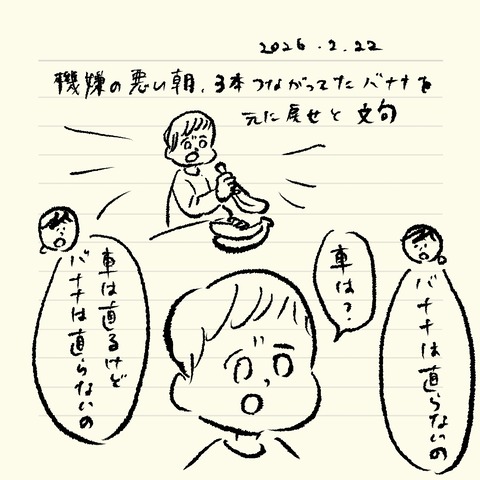 2026.2.22
機嫌の悪い朝、3本つながってたバナナを
元に戻せと文句
バナナは直らないの
車は?
車は直るけど
バナナは直らないの